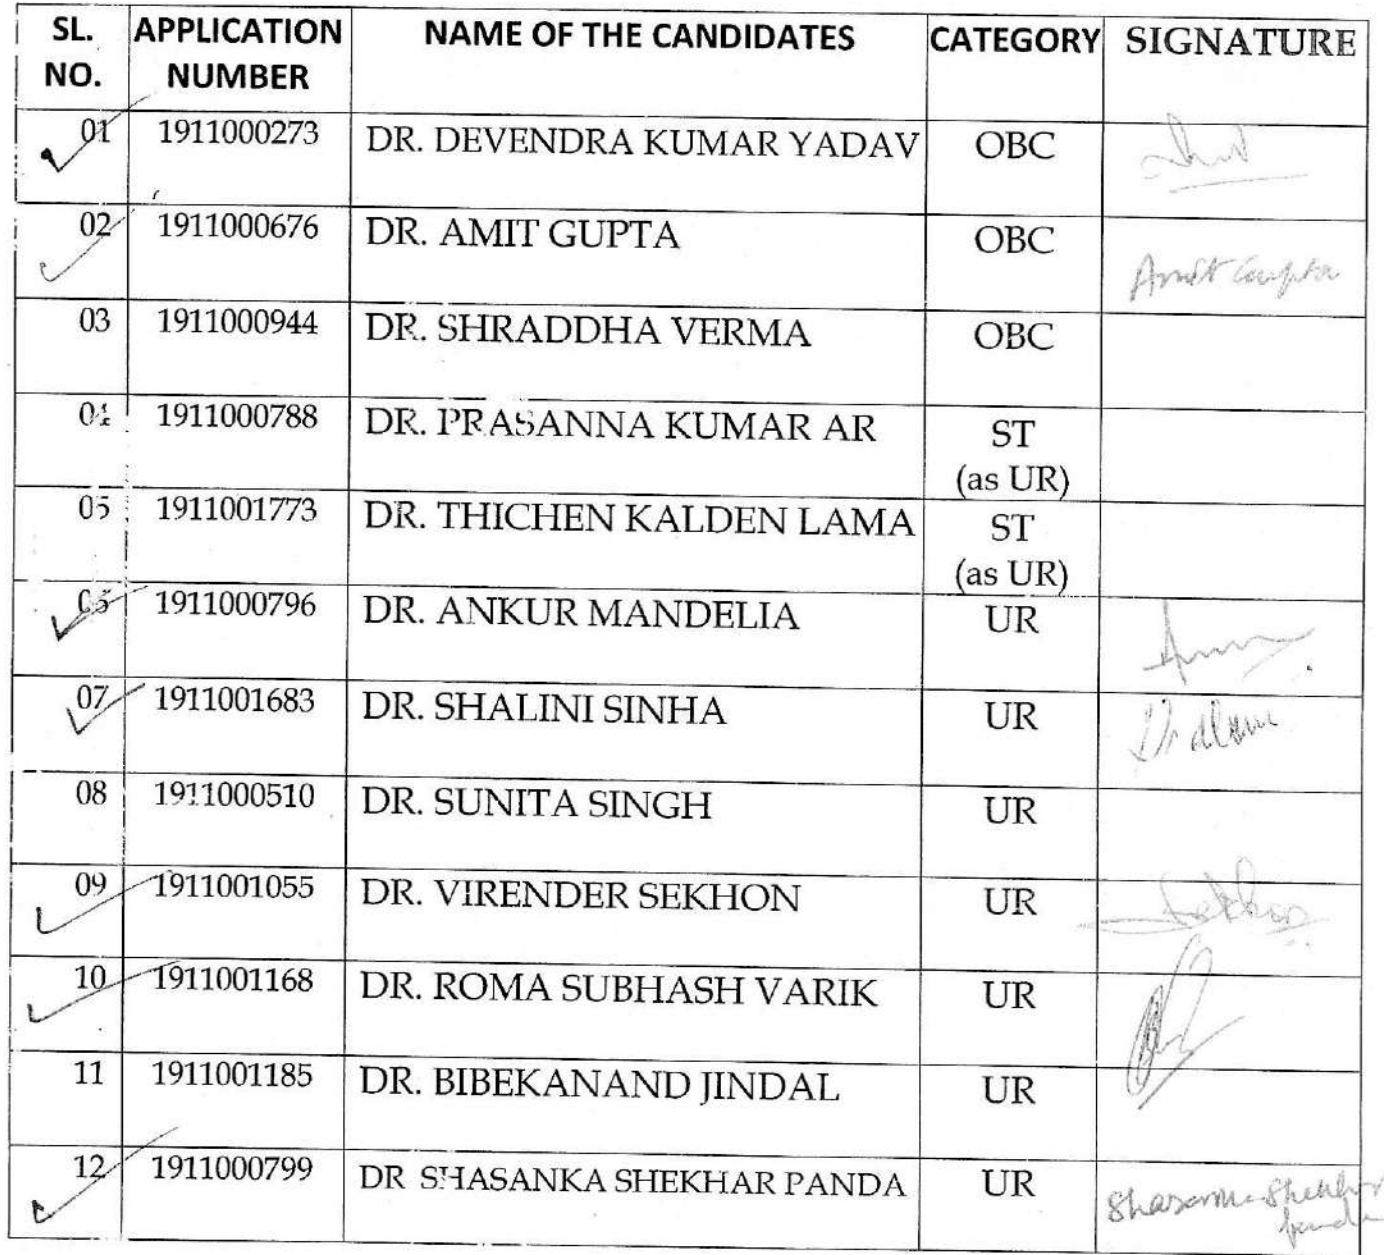 SL. NO. APPLICATION NUMBER NAME OF THE CANDIDATES CATEGORY SIGNATURE
01 1911000273 DR. DEVENDRA KUMAR YADAV OBC
02 1911000676 DR. AMIT GUPTA OBC Amit Gupta
03 1911000944 DR. SHRADDHA VERMA OBC
04 1911000788 DR. PRASANNA KUMAR AR ST (as UR)
05 1911001773 DR. THICHEN KALDEN LAMA ST (as UR)
06 1911000796 DR. ANKUR MANDELIA UR
07 1911001683 DR. SHALINI SINHA UR
08 1911000510 DR. SUNITA SINGH UR
09 1911001055 DR. VIRENDER SEKHON UR Sekhon
10 1911001168 DR. ROMA SUBHASH VARIK UR
11 1911001185 DR. BIBEKANAND JINDAL UR
12 1911000799 DR SHASANKA SHEKHAR PANDA UR Shasanka Shekhar Panda